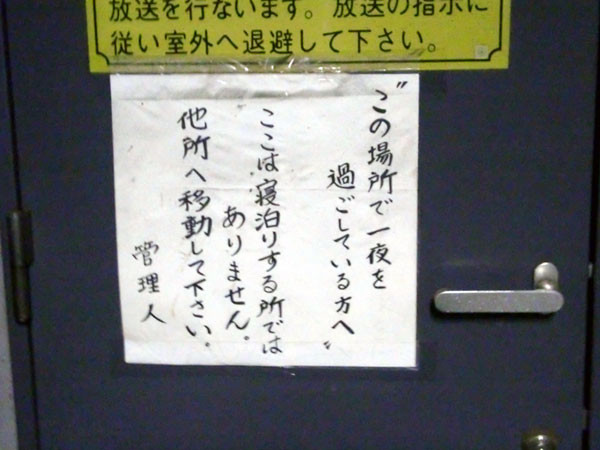 放送を行ないます。放送の指示に
従い室外へ退避して下さい。
〝この場所で一夜を
過ごしている方へ〟
ここは寝泊りする所では
ありません。
他所へ移動して下さい。
管理人